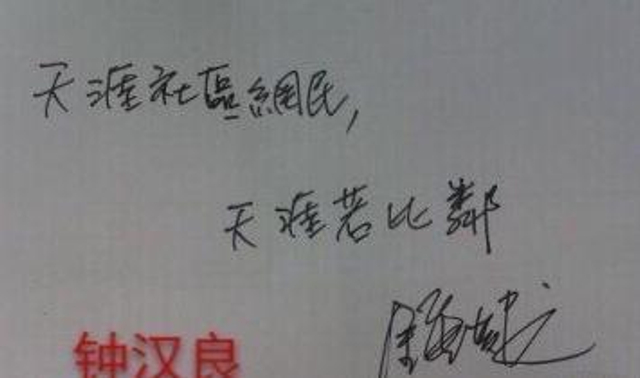 天涯社區網民，
天涯若比鄰
钟汉良